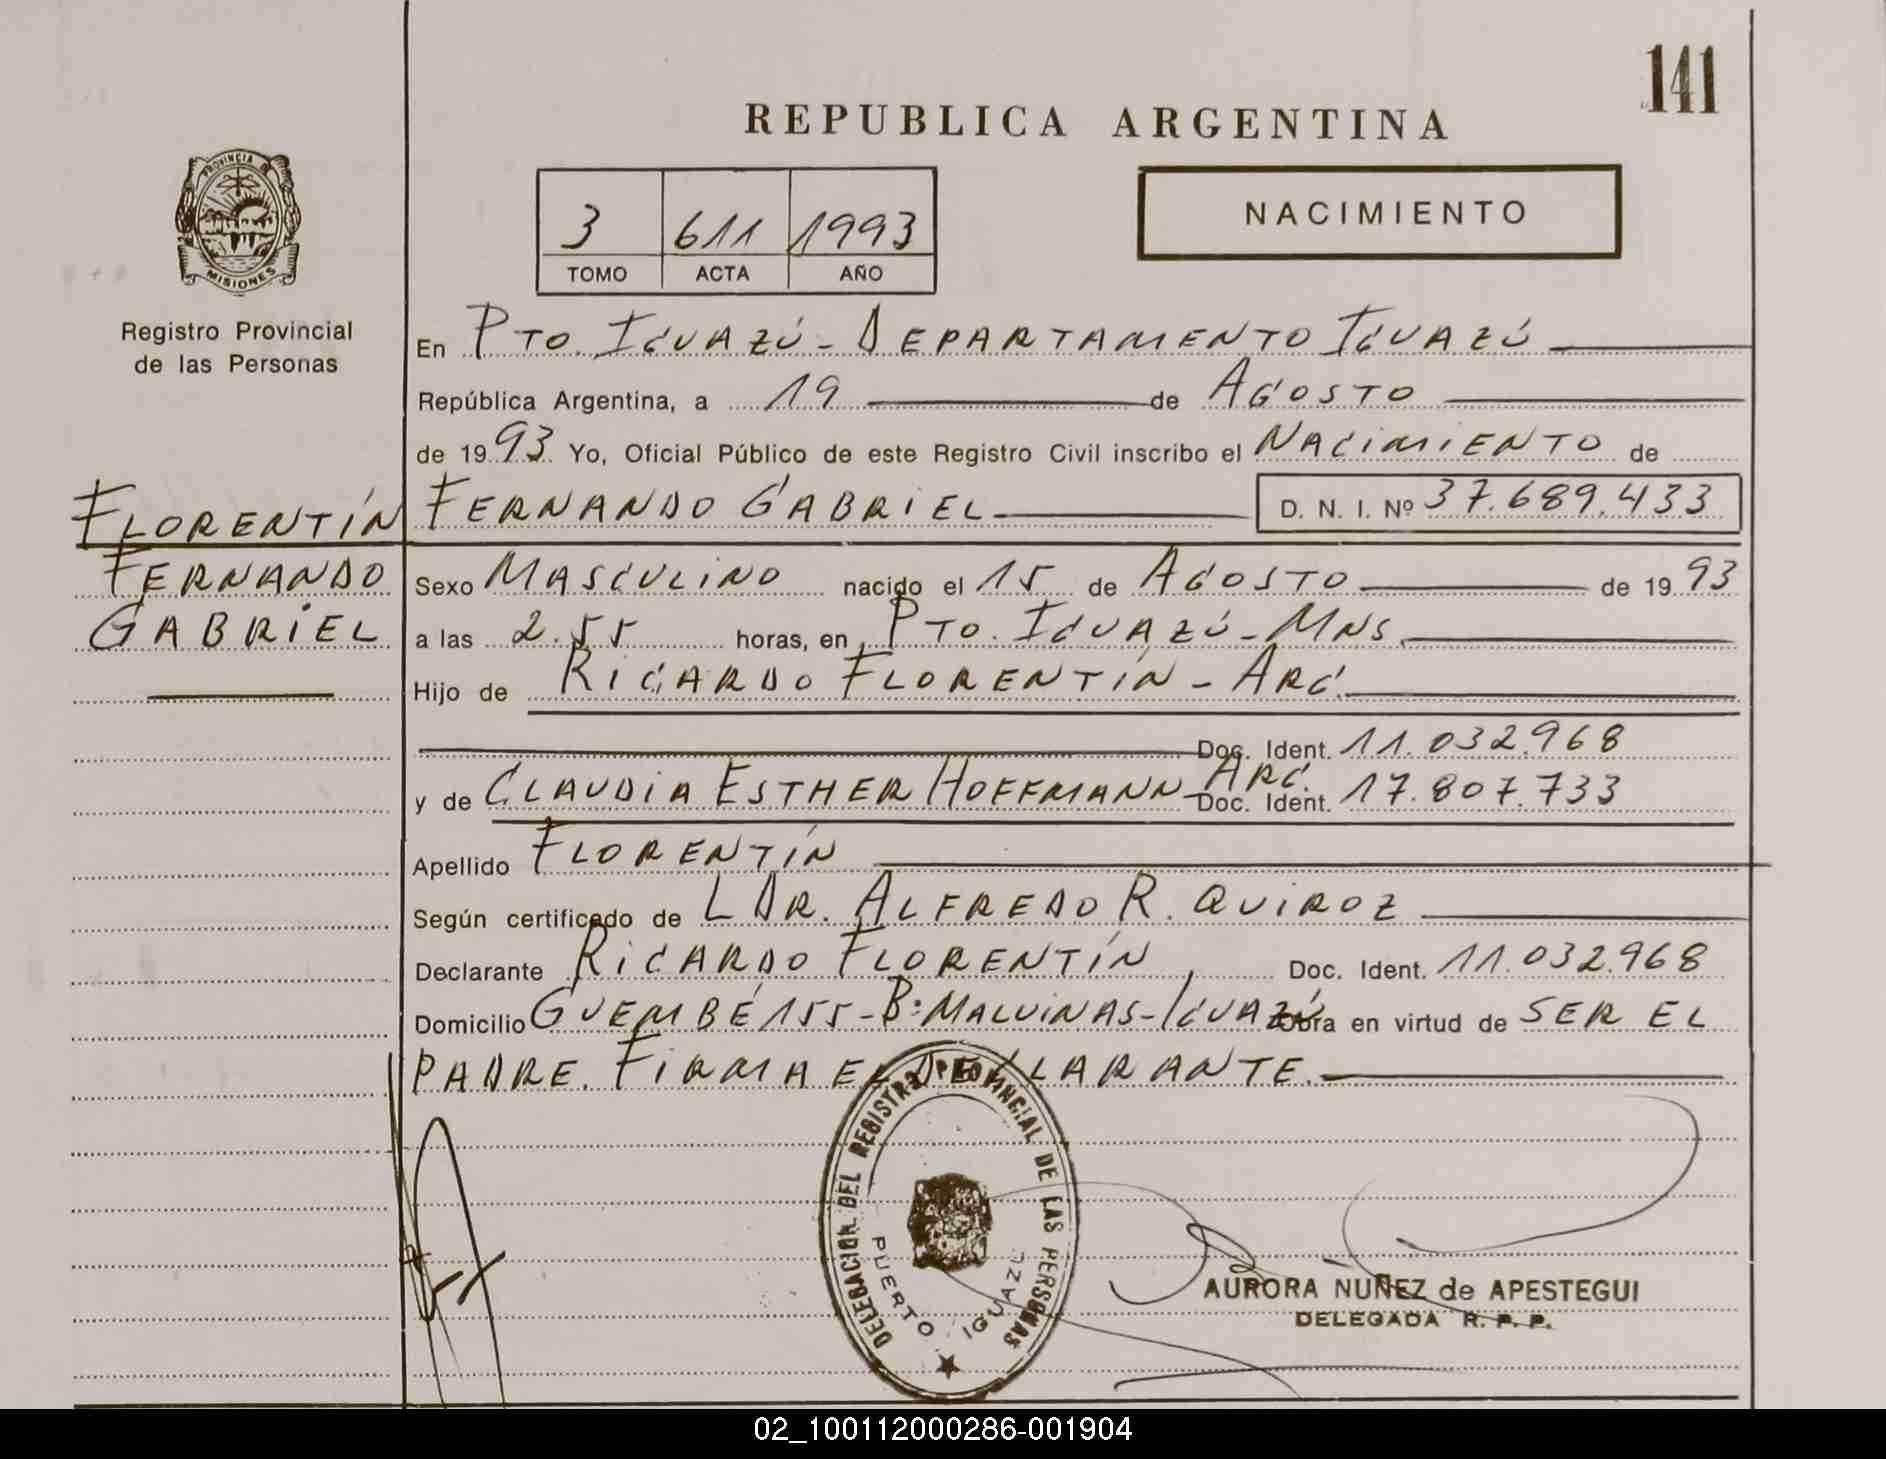 141
REPUBLICA ARGENTINA
PROVINCIA DE
MISIONES
3 611 1993
TOMO ACTA AÑO
NACIMIENTO
Registro Provincial
de las Personas
En PTO. IGUAZÚ - DEPARTAMENTO IGUAZÚ
República Argentina, a 19 de AGOSTO
de 1993 Yo, Oficial Público de este Registro Civil inscribo el NACIMIENTO de
FLORENTÍN FERNANDO GABRIEL D. N. I. Nº 37.689.433
FERNANDO
GABRIEL
Sexo MASCULINO nacido el 15 de AGOSTO de 1993
a las 2.55 horas, en PTO. IGUAZÚ - MNS.
Hijo de RICARDO FLORENTÍN - ARG.
Doc. Ident. 11.032.968
y de CLAUDIA ESTHER HOFFMANN - ARG. Doc. Ident. 17.807.733
Apellido FLORENTÍN
Según certificado de L DR. ALFREDO R. QUIROZ
Declarante RICARDO FLORENTÍN, Doc. Ident. 11.032.968
Domicilio GUEMBÉ 155 - Bº MALVINAS - IGUAZÚ Obra en virtud de SER EL
PADRE. FIRMA EL DECLARANTE.
DELEGACION DEL REGISTRO PROVINCIAL DE LAS PERSONAS
PUERTO IGUAZU
AURORA NUÑEZ de APESTEGUI
DELEGADA R. P. P.
02_100112000286-001904